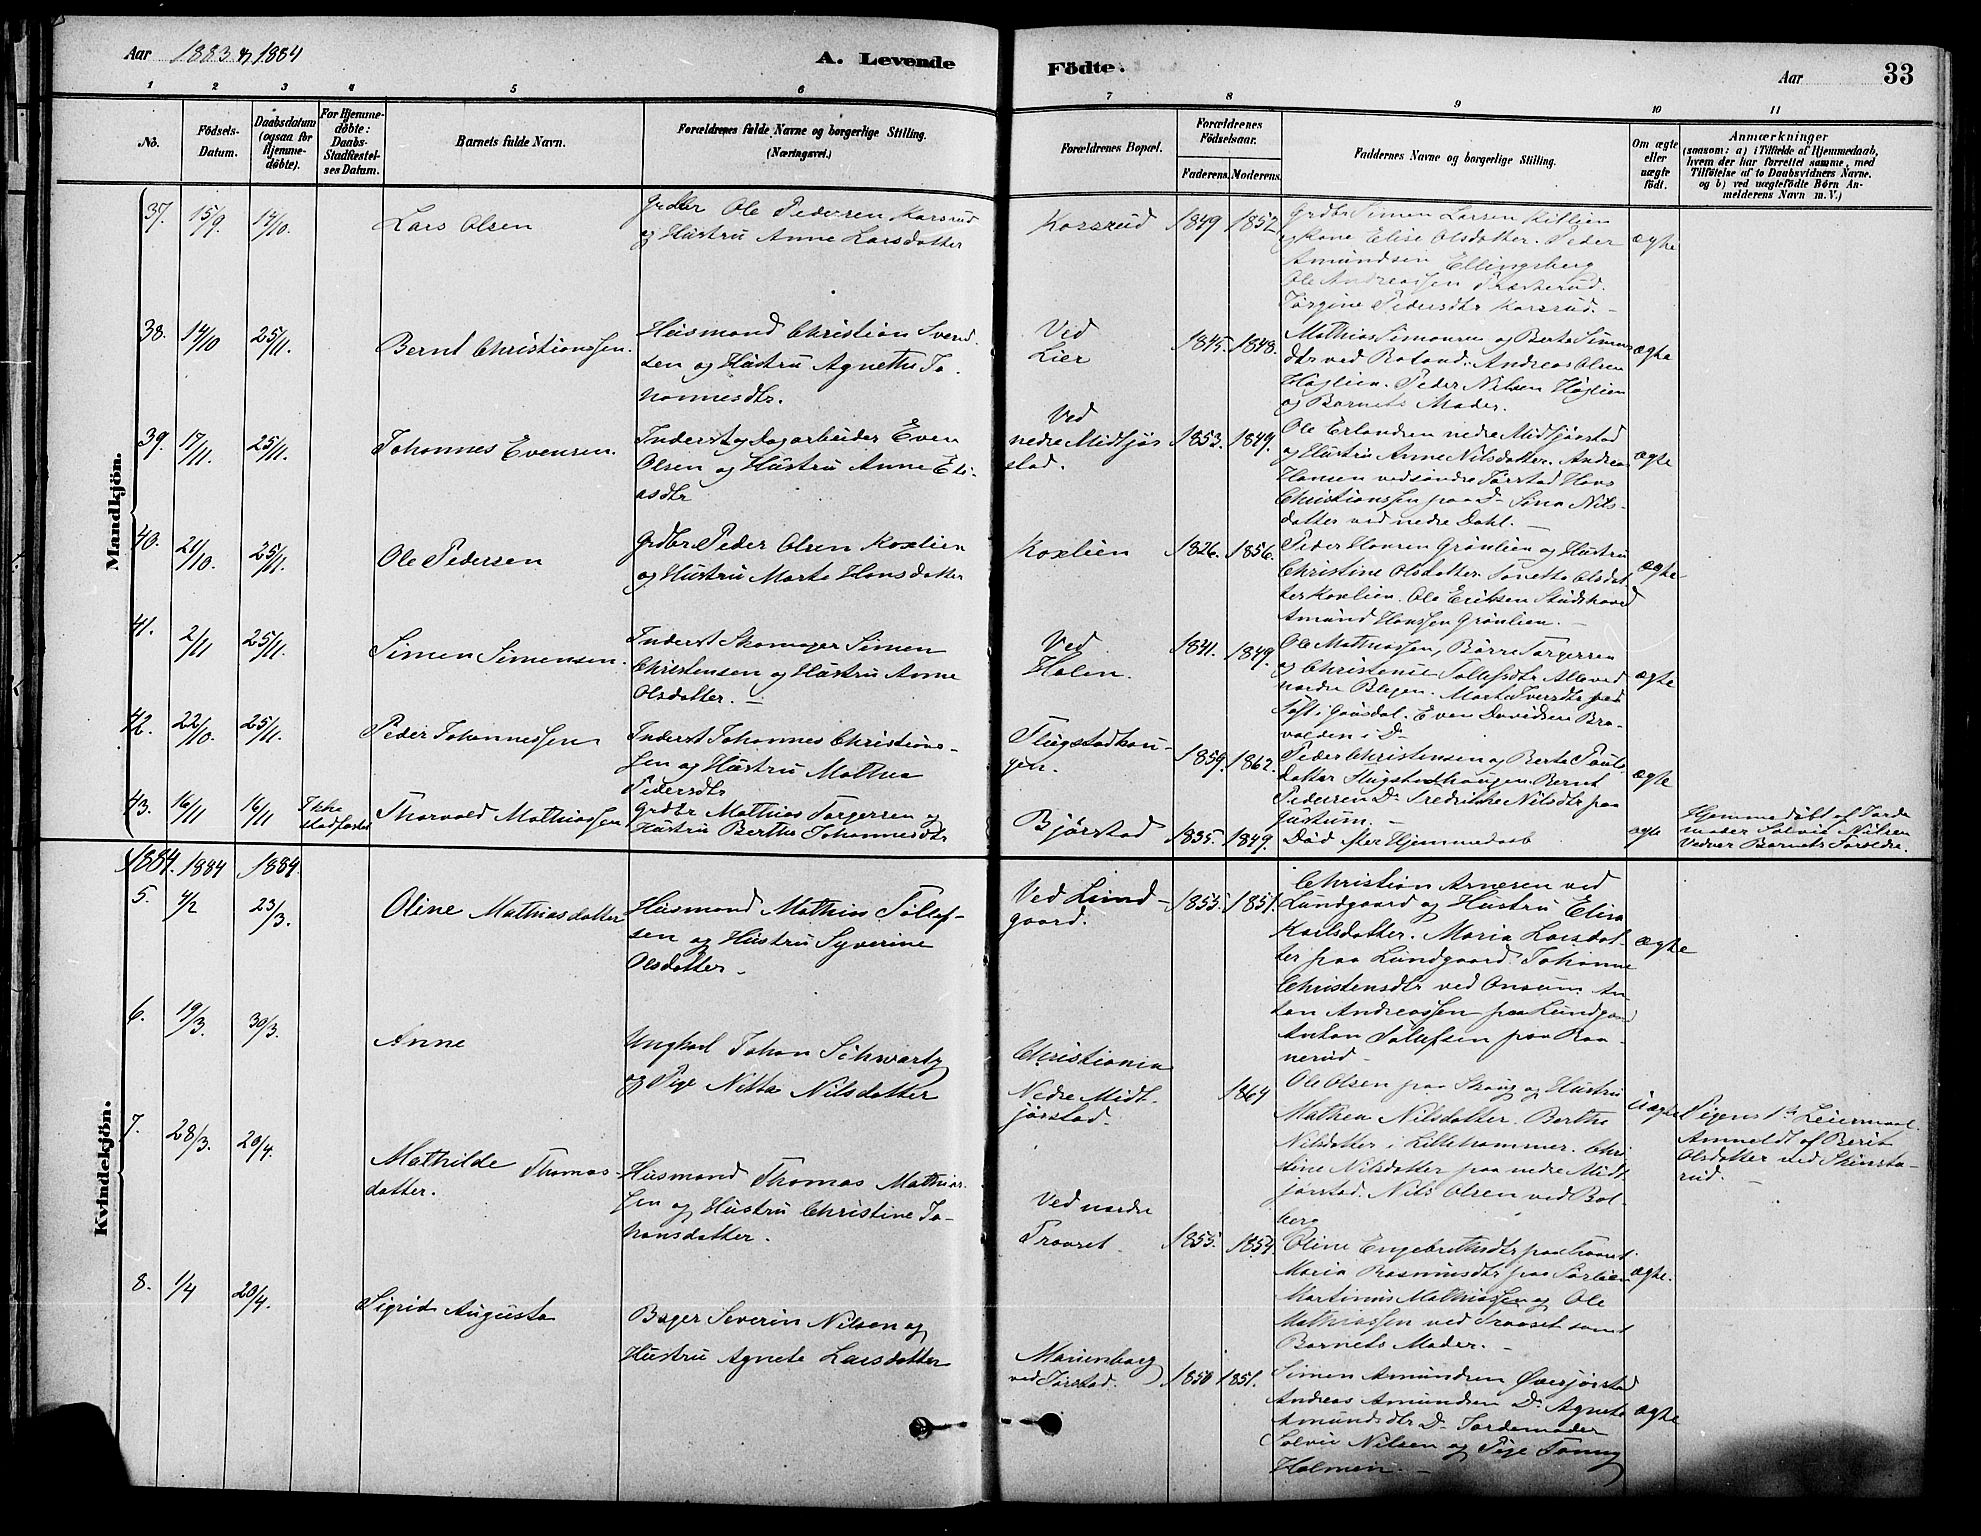 Aar 1883 & 1884
A. Levende
Födte.
Aar
33
1 2 3 4 5 6 7 8 9 10 11
No.
Födsels-
Datum.
Daabsdatum
(ogsaa for
Hjemme-
døbte).
For Hjemme-
døbte:
Daabs-
Stadfæstel-
ses Datum.
Barnets fulde Navn.
Forældrenes fulde Navne og borgerlige Stilling.
(Næringsvei.)
Forældrenes Bopæl.
Forældrenes
Födselsaar.
Faderens. Moderens.
Faddernes Navne og borgerlige Stilling.
Om ægte
eller
uægte
födt.
Anmærkninger
(saasom: a) i Tilfælde af Hjemmedaab,
hvem der har forrettet samme, med
Tilföielse af to Daabsvidners Navne.
og b) ved uægtefödte Börn An-
melderens Navn m. V.)
Mandkjön.
37. 15/9. 14/10. Lars Olsen
Grdbr Ole Pedersen Korsrud
og Hustru Anne Larsdatter
Korsrud 1849 1852
Grdbr Simen Larsen Killien
og Kone Elise Olsdatter. Peder
Amundsen Ellingsberg
Ole Andreassen Præsterud.
Jørgine Pedersdtr Korsrud.
ægte
38. 14/10 25/11. Bernt Christianssen.
Husmand Christian Svend-
sen og Hustru Agnethe Jo-
hannesdtr.
Ved
Lier 1845. 1848.
Mathias Simonsen og Berte Simens
dtr ved Roland. Andreas Olsen
Høglien. Peder Nilsen Høglien
og Barnets Moder.
ægte
39. 17/11. 25/11. Johannes Evensen.
Inderst og Dagarbeider Even
Olsen og Hustru Anne Eli-
asdtr
Ved
nedre Midtjør
stad. 1853. 1849.
Ole Erlandsen nedre Midtjørstad
og Hustru Anne Nilsdatter. Andreas
Hansen ved søndre Jørstad Hans
Christianssen paa Do Sina Nils-
datter ved nedre Dahl.
ægte
40. 21/10. 25/11. Ole Pedersen
Grdbr Peder Olsen Koxlien
og Hustru Marte Hansdatter
Koxlien 1826. 1856.
Peder Hansen Grønlien og Hustru
Christine Olsdatter. Sonette Olsdat-
ter Koxlien. Ole Eriksen Studshoved
Amund Hanssen Grønlien.
ægte
41. 2/11 25/11. Simen Simensen.
Inderst Skomager Simen
Christensen og Hustru Anne
Olsdatter.
Ved
Holen. 1841. 1849.
Ole Mathiassen, Børre Torgersen
og Christense Tollefsdtr Alle ved
nordre Blegen. Marte Iversdtr ved
i Gausdal. Even Davidsen Bra-
valden i Do
ægte
42. 22/10. 25/11. Peder Johannessen
Inderst Johannes Christians-
sen og Hustru Mathea
Pedersdtr
Flugstadhau-
gen. 1859. 1862.
Peder Christensen og Berte Pauls-
datter Flugstadhaugen. Bernt
Pedersen Do Fredrikke Nilsdtr paa
Gustum.
ægte
43. 16/11 16/11 Ikke
stadfæstet Thorvald Mathiassen
Grdbr Mathias Torgersen og
Hustru Berthe Johannesdtr
Bjørstad 1835. 1849. Død efter Hjemmedaab ægte
Hjemmedøbt af Jorde
moder Solvie Nilsen
Vedver Barnets Foreldre.
Kvindekjön.
1884. 1884 1884.
5. 4/2 23/3. Oline Mathiasdatter
Husmand Mathias Tollef-
sen og Hustru Syverine
Olsdatter
Ved Lund-
gaard. 1855. 1851.
Christian Arnesen ved
Lundgaard og Hustru Elisa
Karlsdatter. Maria Larsdat-
ter paa Lundgaard Johanne
Christensdtr ved Onsum An-
ton Andreassen paa Lundgaard
Anton Tollefsen paa Raa-
nerud
ægte
6. 19/3. 30/3. Anne
Ungkarl Johan Schwartz
og Pige Netta Nilsdatter
Christiania
Nedre Midt-
jørstad. 1864
Ole Olsen paa Skaug og Hustru
Mathea Nilsdatter. Berthe
Nilsdatter i Lillehammer. Chri-
stine Nilsdatter paa nedre Midt-
jørstad. Nils Olsen ved Bol-
berg
uægte
Pigens 1ste Leiermaal.
Anmeldt af Berit
Olsdatter ved Skinsta-
rud.
7. 28/3. 20/4. Mathilde Thomas-
datter.
Husmand Thomas Mathias-
sen og Hustru Christine Jo-
hansdatter.
Ved nordre
Traaset 1855. 1854.
Oline Engebretsdtr paa Traaset
Maria Rasmusdtr paa Sørlien
Martinus Mathiassen og Ole
Mathiassen ved Traaset samt
Barnets Moder.
ægte.
8. 1/4 20/4. Sigrid Augusta
Bager Severin Nilsen og
Hustru Agnete Larsdatter
Marienborg
ved Jørstad. 1850 1851.
Simen Amundsen Øvrejørstad
Andreas Amundsen Do Agnete
Amundsdtr Do Jordemoder
Solvie Nilsen og Pige Fanny
Holmen.
ægte